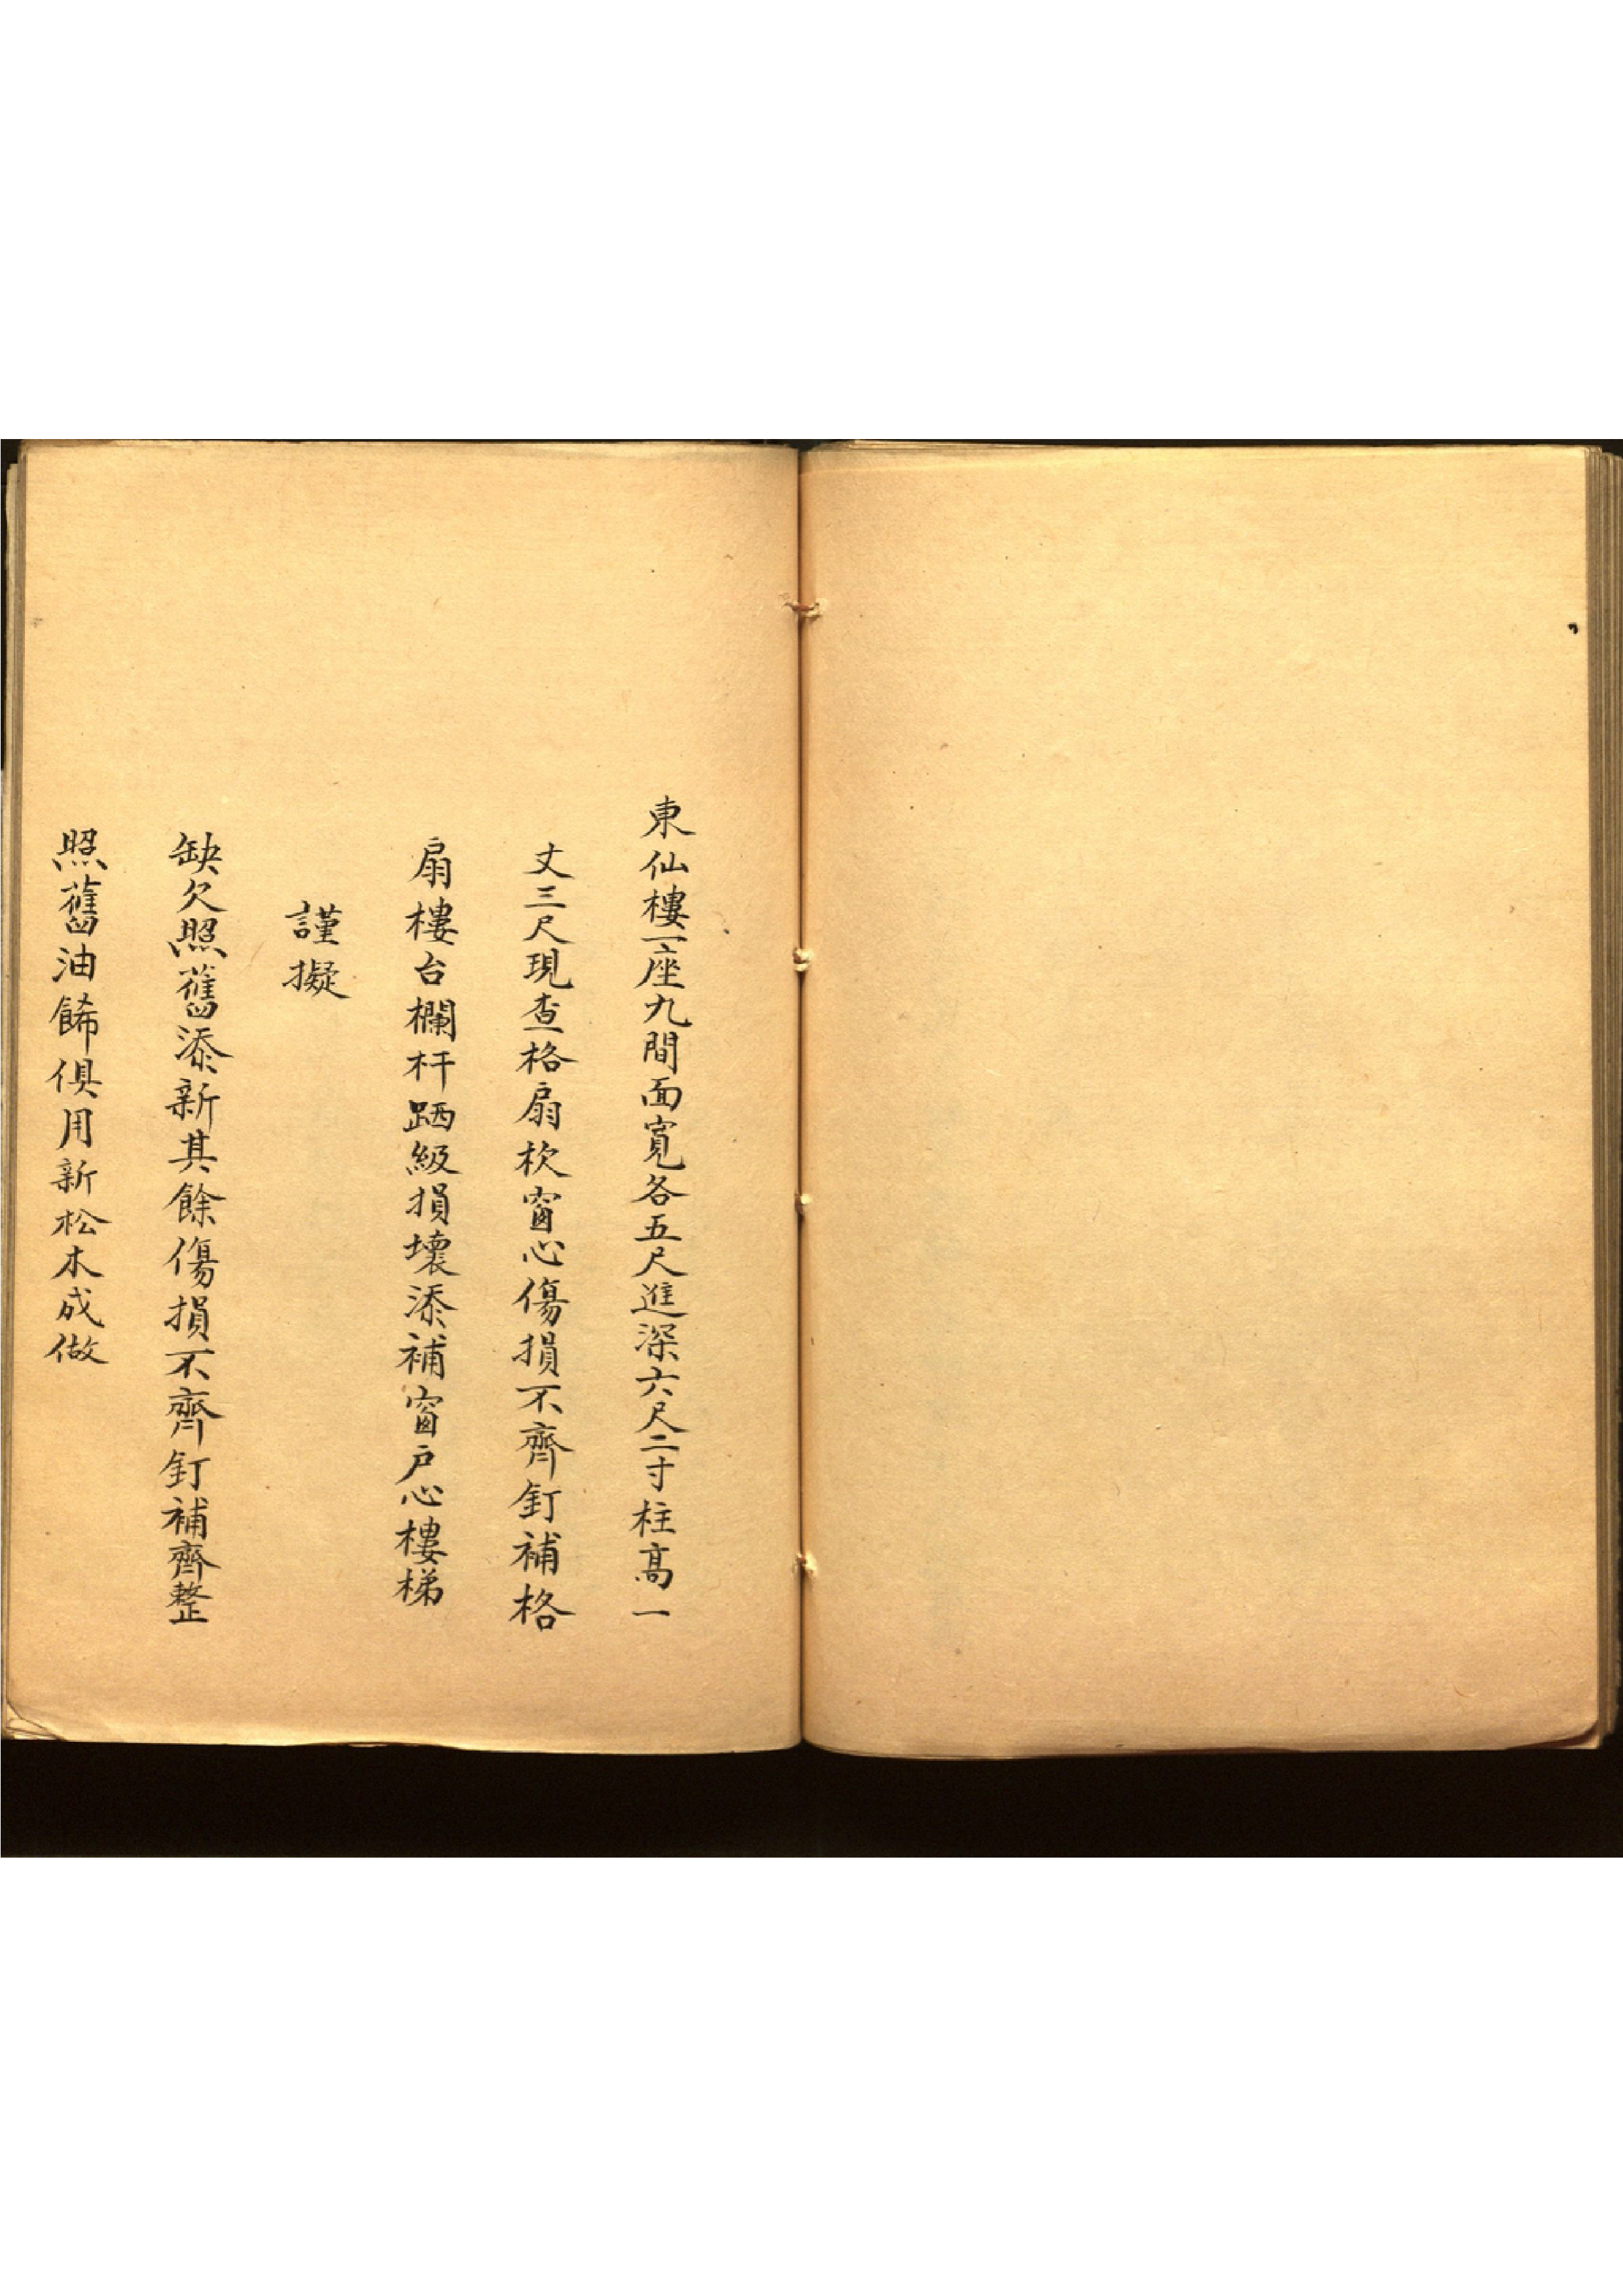 東仙樓一座九間面寬各五尺進深六尺二寸柱高一
丈三尺現查格扇栨窗心傷損不齊釘補格
扇樓台欄杆跴級損壞添補窗户心樓梯
謹擬
缺欠照舊添新其餘傷損不齊釘補齊整
照舊油餙俱用新松木成做